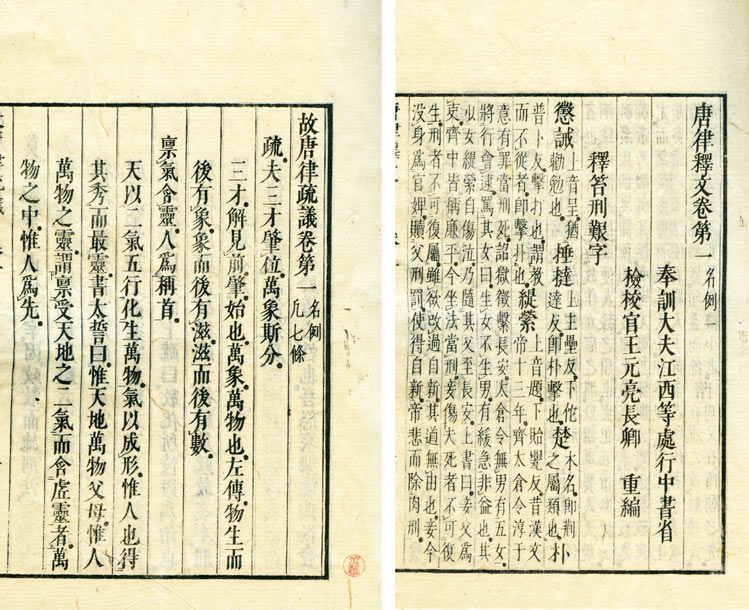 唐律釋文卷第一 名例一
奉訓大夫江西等處行中書省
撿校官王元亮長卿 重編
釋笞刑艱字
懲誡上音呈猶勅勉也捶撻上主壘反下佗達反卽朴擊也楚木名卽荆之屬類也朴
普卜反擊打也謂教而不從者卽擊扑也緹縈上音題下貽嬰反昔漢文帝十三年齊太倉令淳于
意有罪當刑死詔獄徵繫長安太倉令無男有五女
將行會逮罵其女曰生女不生男有緩急非益也其
少女緹縈自傷泣乃隨其父至長安上書曰妾父爲
吏齊中皆稱廉平今坐法當刑妾傷夫死者不可復
生刑者不可復屬雖欲改過自新其道無由也妾今
没身爲官婢贖父刑罰使得自新帝悲而除肉刑
故唐律疏議卷第一 名例凡七條
疏。夫三才肇位。萬象斯分。
三才。解見前。肇。始也。萬象。萬物也。左傳。物生而
後有象。象而後有滋。滋而後有數。
稟氣含靈。人爲稱首。
天以二氣五行化生萬物。氣以成形。惟人也得
其秀而最靈。書太誓曰。惟天地萬物父母。惟人
萬物之靈。謂稟受天地之二氣而含虛靈者。萬
物之中。惟人爲先。